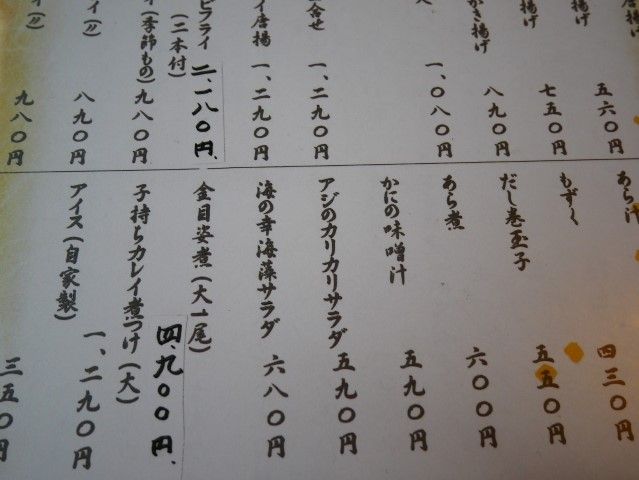 唐揚
五六〇円
揚げ
七五〇円
揚げ
八九〇円
かき揚げ
一、〇八〇円
合せ
一、二九〇円
イ唐揚
一、二九〇円
ビフライ
(二本付)
二、一八〇円
(季節もの)
九八〇円
イ(〃)
八九〇円
イ(〃)
九八〇円
あら汁
もずく
四三〇円
だし巻玉子
五五〇円
あら煮
六〇〇円
かにの味噌汁
五九〇円
アジのカリカリサラダ
五九〇円
海の幸海藻サラダ
六八〇円
金目姿煮(大一尾)
四、九〇〇円
子持ちカレイ煮つけ(大)
一、二九〇円
アイス(自家製)
三五〇円